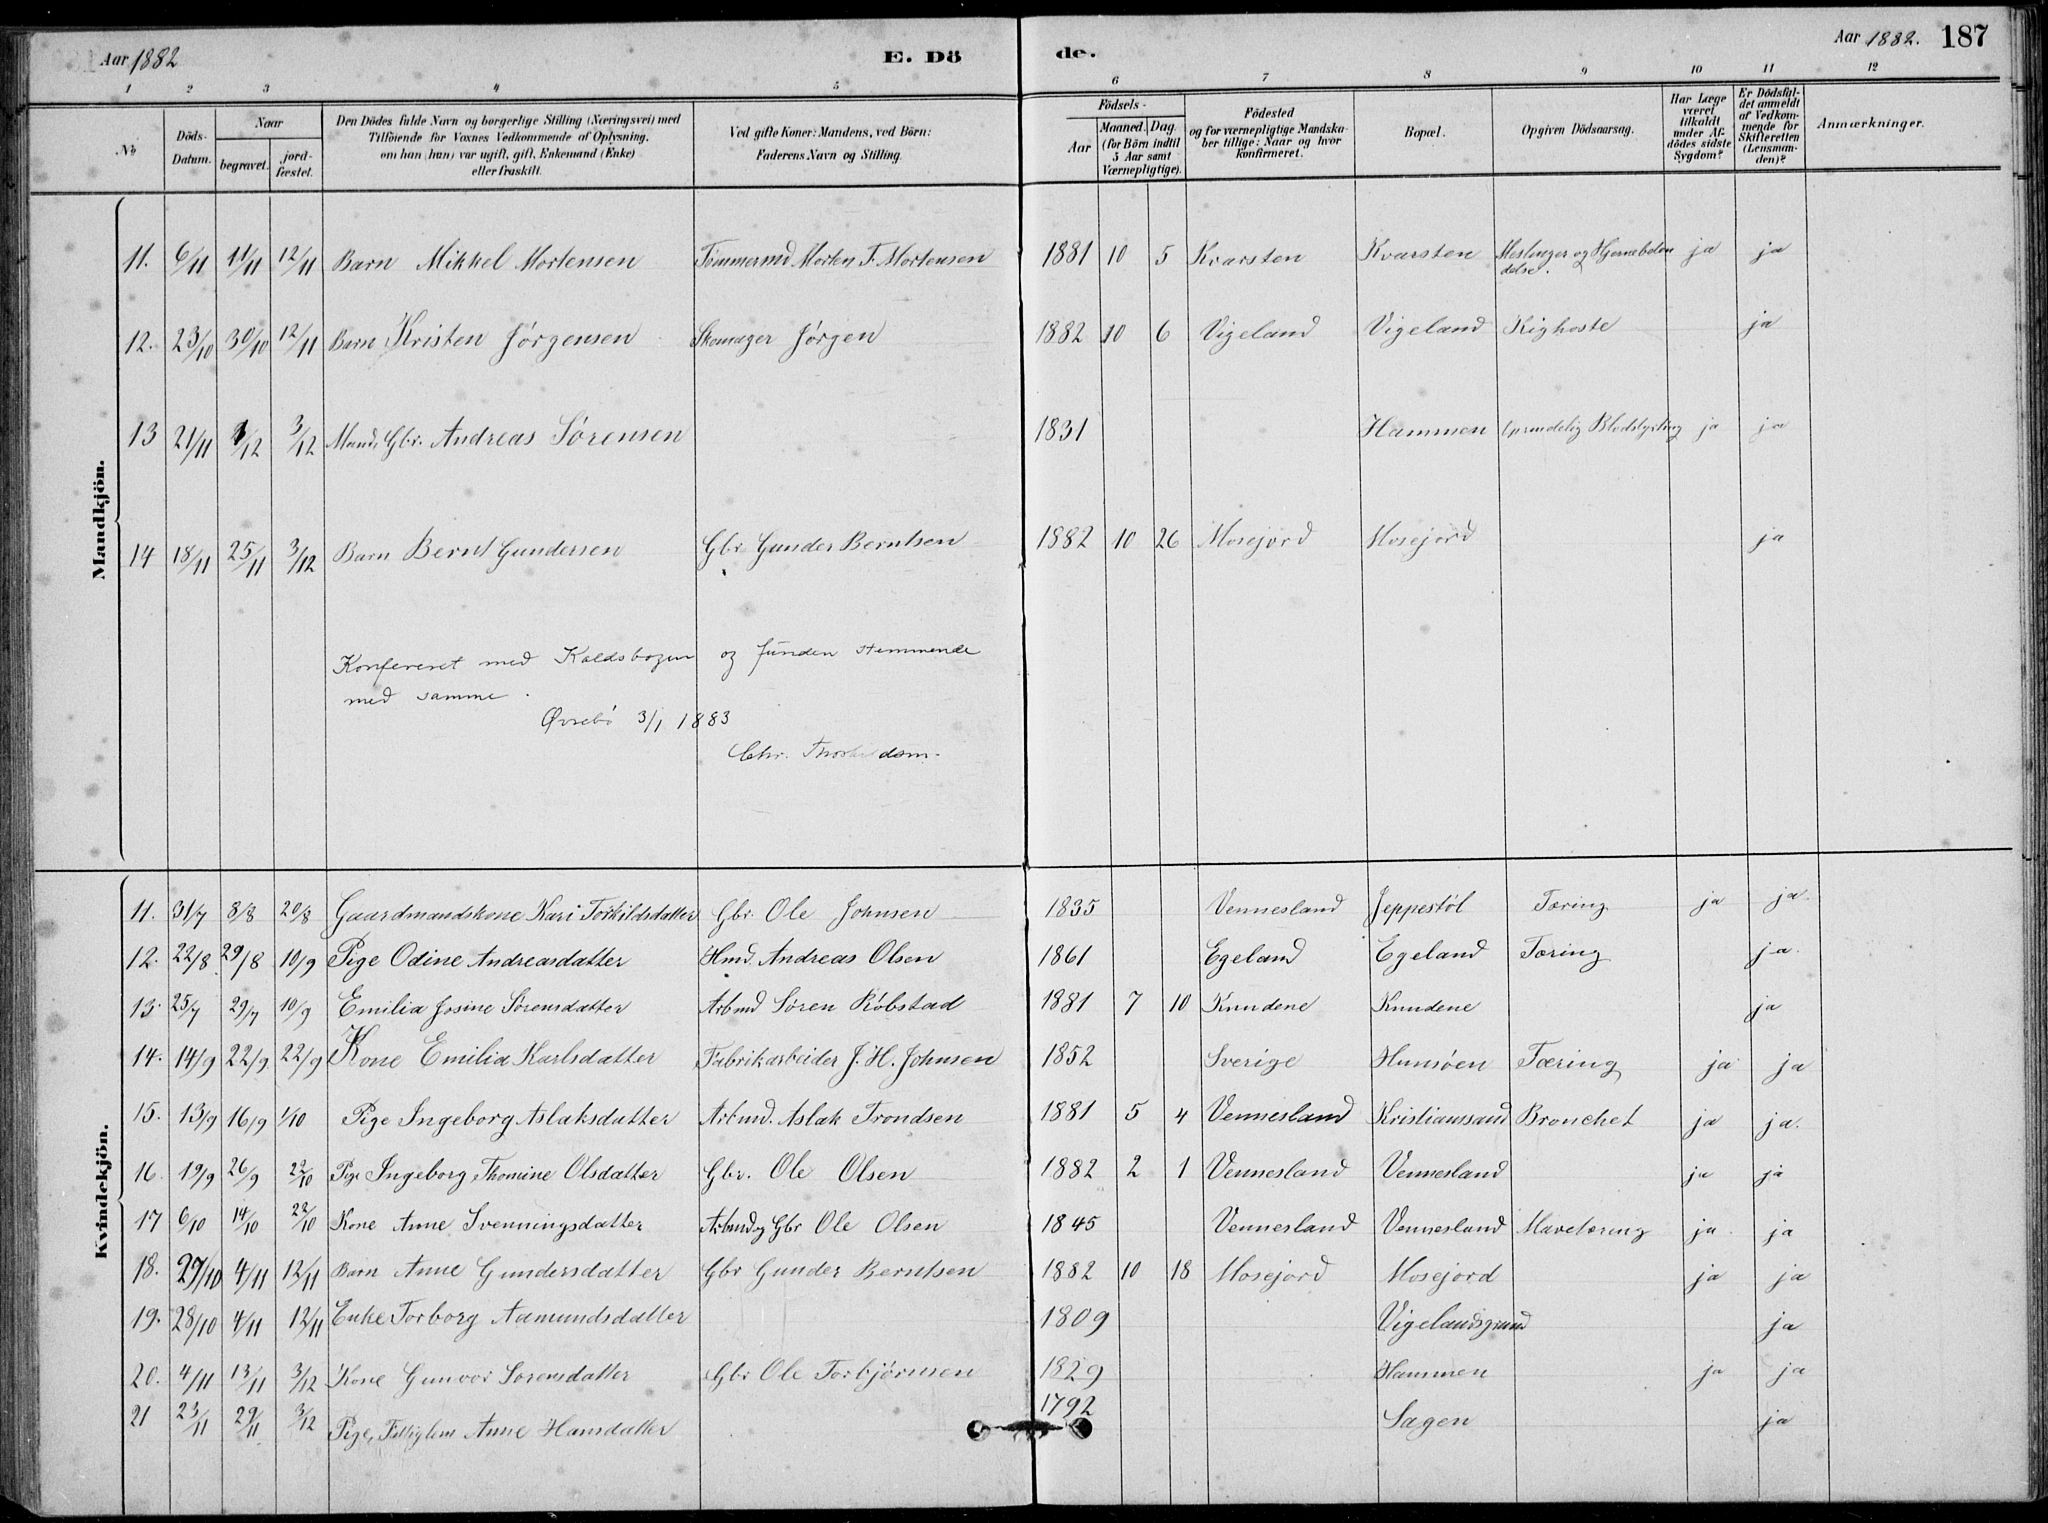 Aar 1882
E. Dö
de.
Aar 1882. 187
1 2 3 4 5 6 7 8 9 10 11 12
No
Döds-Datum.
Naar
begravet.
jord-fæstet.
Den Dödes fulde Navn og borgerlige Stilling (Næringsvei) med
Tilföiende for Voxnes Vedkommende af Oplysning,
om han (hun) var ugift, gift, Enkemand (Enke)
eller fraskilt.
Ved gifte Koner: Mandens, ved Börn:
Faderens Navn og Stilling.
Födsels-
Aar
Maaned. Dag.
(for Börn indtil
5 Aar samt
Værnepligtige).
Födested
og for værnepligtige Mandska-
ber tillige: Naar og hvor
konfirmeret.
Bopæl.
Opgiven Dödsaarsag.
Har Læge
været
tilkaldt
under Af-
dödes sidste
Sygdom?
Er Dödsfal-
det anmeldt
af Vedkom-
mende for
Skifteretten
(Lensman-
den)?
Anmærkninger.
Mandkjön.
11. 6/11 11/11 12/11 Barn Mikkel Mortensen Tømmermd Morten T. Mortensen 1881 10 5 Kvarsten Kvarsten Meslinger og Hjernebeten
delse. ja ja
12. 23/10 30/10 12/11 Barn Kristen Jørgensen Skomager Jørgen 1882 10 6 Vigeland Vigeland Kighoste ja
13 21/11 1/12 3/12 Mand, Gbr. Andreas Sørensen 1831 Hammen Blodstyrtning ja ja
14 18/11 25/11 3/12 Barn Bernt Gundersen Gbr Gunder Berntsen 1882 10 26 Mosejord Mosejord ja
Konfereret med Kaldsbogen og funden stemmende
med samme.
Øvrebö 3/1 1883
Chr.
Kvindekjön.
11. 31/7 8/8 20/8 Gaardmandskone Kari Torkildsdatter Gbr. Ole Johnsen 1835 Vennesland Jeppestöl Tæring ja ja.
12. 22/8 29/8 10/9 Pige Odine Andreasdatter Hmd. Andreas Olsen 1861 Egeland Egeland Tæring ja.
13. 25/7 29/7 10/9 Emilia Josine Sørensdatter Arbmd Søren Röbstad 1881 7 10 Knudene Knudene ja
14. 14/9 22/9. 22/9 Kone Emilia Karlsdatter Fabrikarbeider J. H. Johnsen 1852 Sverige Hunsöen Tæring ja ja
15. 13/9 16/9 1/10 Pige Ingeborg Aslaksdatter Arbmd. Aslak Trondsen 1881 5 4 Vennesland Kristianssand Bronchet ja ja.
16. 19/9 26/9 22/10 Pige Ingeborg Thomine Olsdatter Gbr. Ole Olsen 1882 2 1 Vennesland Vennesland ja ja
17 6/10 14/10 22/10 Kone Anne Svenningsdatter Arbmd og Gbr Ole Olsen 1845 Vennesland Vennesland Mavetæring ja. ja
18. 27/10 4/11 12/11 Barn Anne Gundersdatter Gbr Gunder Berntsen 1882 10 18 Mosejord Mosejord ja ja
19. 28/10 4/11 12/11 Enke Torborg Aamundsdatter 1809 Vigelandsgrund ja
20. 4/11 13/11 3/12 Kone Gunvor Sørensdatter Gbr Ole Torbjørnsen 1829 Hammen ja ja
21 23/11 29/11 3/12 Pige, Fattiglem Anne Hansdatter 1792 Sagen ja